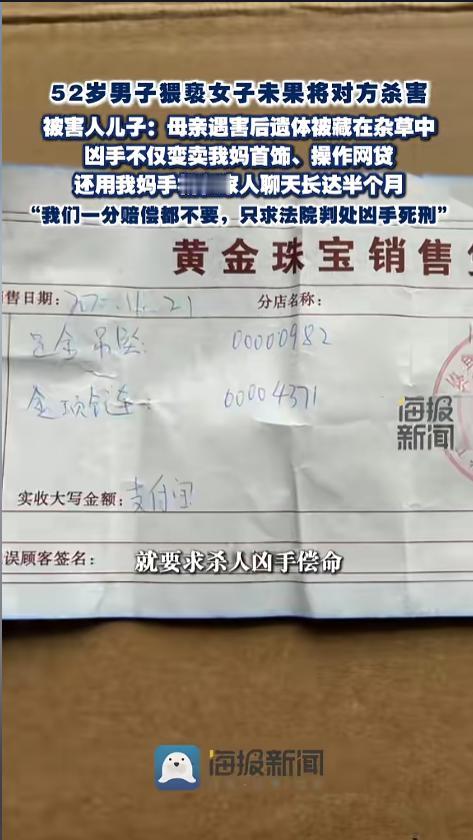 52岁男子猥亵女子未果将对方杀害
被害人儿子：母亲遇害后遗体被藏在杂草中
凶手不仅变卖我妈首饰、操作网贷
还用我妈手 家人聊天长达半个月
“我们一分赔偿都不要，只求法院判处凶手死刑”
黄金珠宝销售
售日期：
分店名称：
00000982
金项链：
00004371
海报
新闻
实收大写金额：支付宝
误顾客签名：
就要求杀人凶手偿命
海报新闻